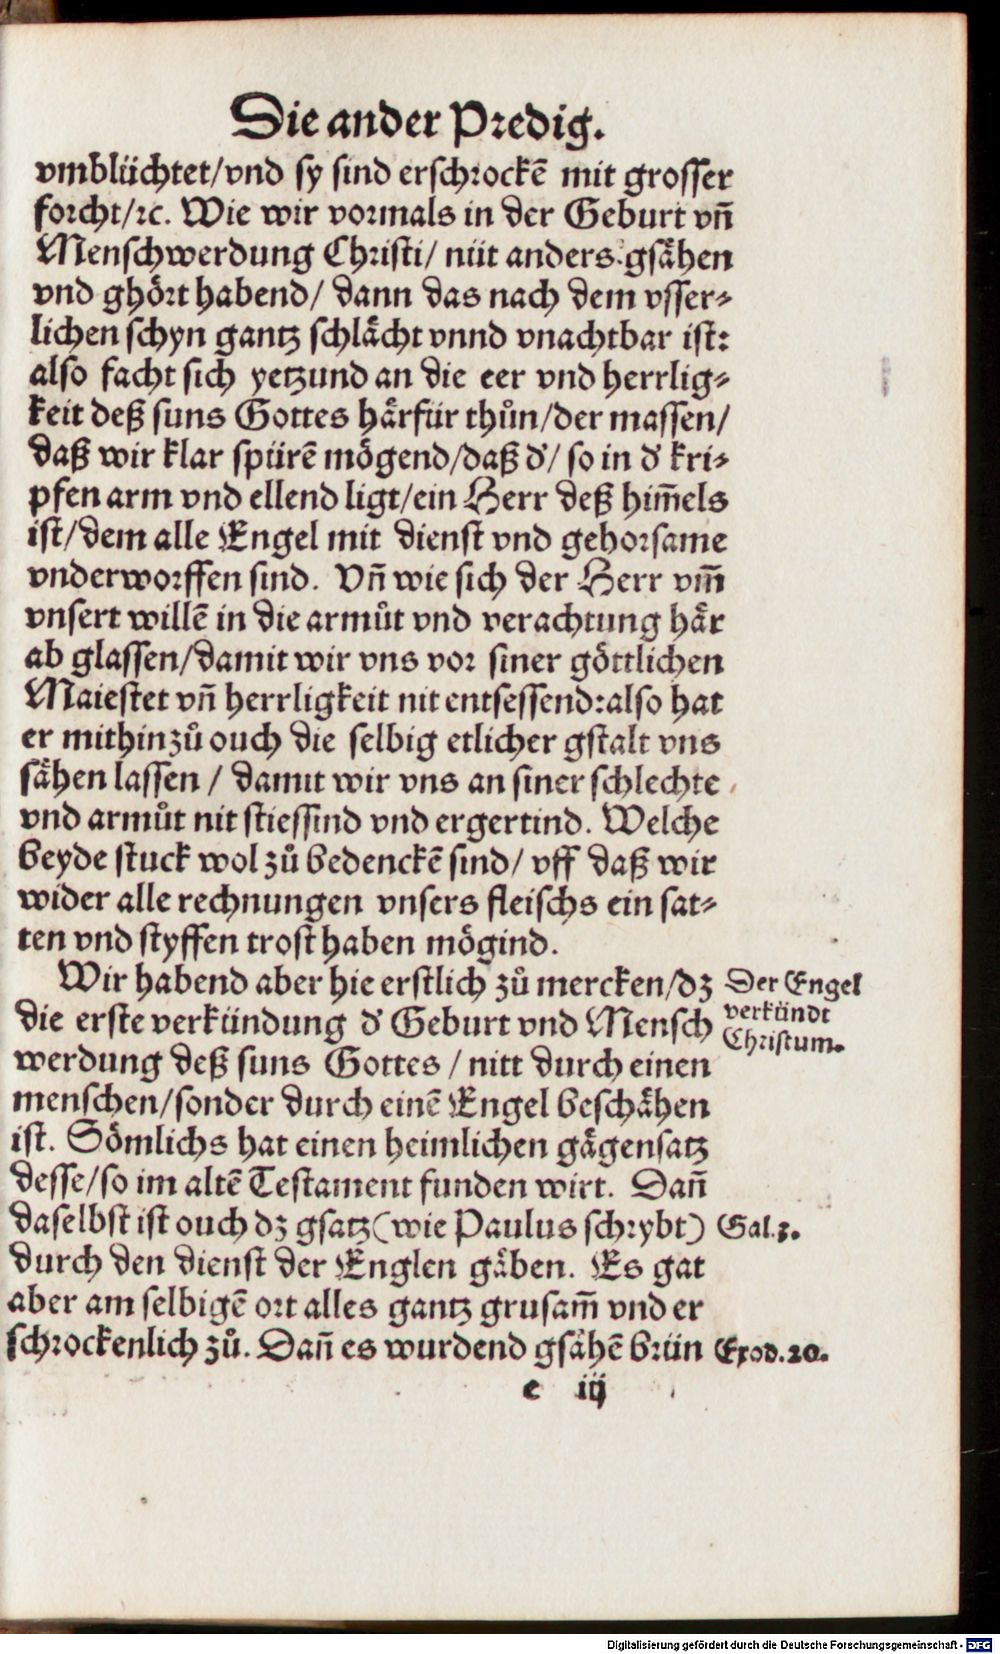 Die ander Predig.
vmblüchtet/vnd sy sind erschrockē mit grosser
forcht/ꝛc. Wie wir vormals in der Geburt vn̄
Menschwerdung Christi/ nüt anders gsåhen
vnd ghört habend/ dann das nach dem vsser⸗
lichen schyn gantz schlächt vnnd vnachtbar ist:
also facht sich yetzund an die eer vnd herrlig⸗
keit deß suns Gottes härfür thůn/der massen/
daß wir klar spürē mögend/daß d'/ so in d' kri⸗
pfen arm vnd ellend ligt/ein Herr deß him̄els
ist/dem alle Engel mit dienst vnd gehorsame
vnderworffen sind. Vn̄ wie sich der Herr vm̄
vnsert willē in die armůt vnd verachtung här
ab glassen/damit wir vns vor siner göttlichen
Maiestet vn̄ herrligkeit nit entsessend:also hat
er mithinzů ouch die selbig etlicher gstalt vns
sähen lassen / damit wir vns an siner schlechte
vnd armůt nit stiessind vnd ergertind. Welche
beyde stuck wol zů bedenckē sind/ vff daß wir
wider alle rechnungen vnsers fleischs ein sat⸗
ten vnd styffen trost haben mögind.
Wir habend aber hie erstlich zů mercken/dz
die erste verkündung d' Geburt vnd Mensch
werdung deß suns Gottes / nitt durch einen
menschen/sonder durch einē Engel beschähen
ist. Sömlichs hat einen heimlichen gägensatz
desse/so im altē Testament funden wirt. Dan̄
daselbst ist ouch dz gsatz(wie Paulus schrybt)
durch den dienst der Englen gäben. Es gat
aber am selbigē ort alles gantz grusam̄ vnd er
schrockenlich zů. Dan̄ es wurdend gsähē brün
Der Engel
verkündt
Christum.
Gal.3.
Exod.20.
e iij
Digitalisierung gefördert durch die Deutsche Forschungsgemeinschaft - DFG